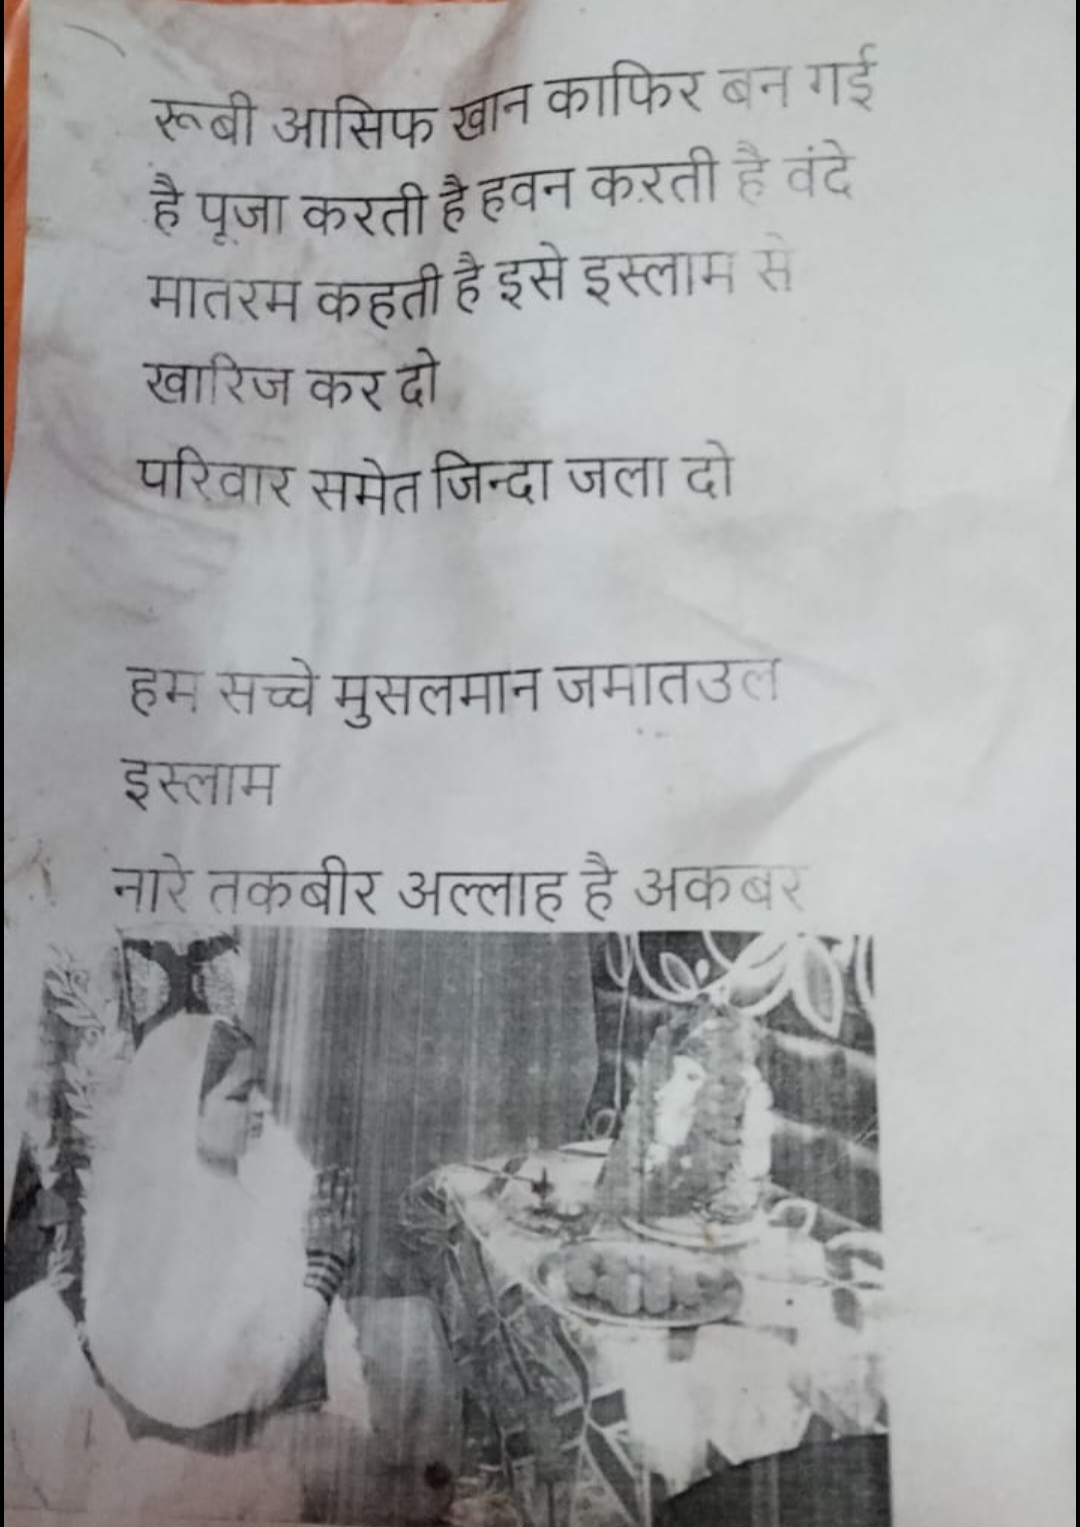 रूबी आसिफ खान काफिर बन गई
है पूजा करती है हवन करती है वंदे
मातरम कहती है इसे इस्लाम से
खारिज कर दो
परिवार समेत जिन्दा जला दो
हम सच्चे मुसलमान जमातउल
इस्लाम
नारे तकबीर अल्लाह है अकबर